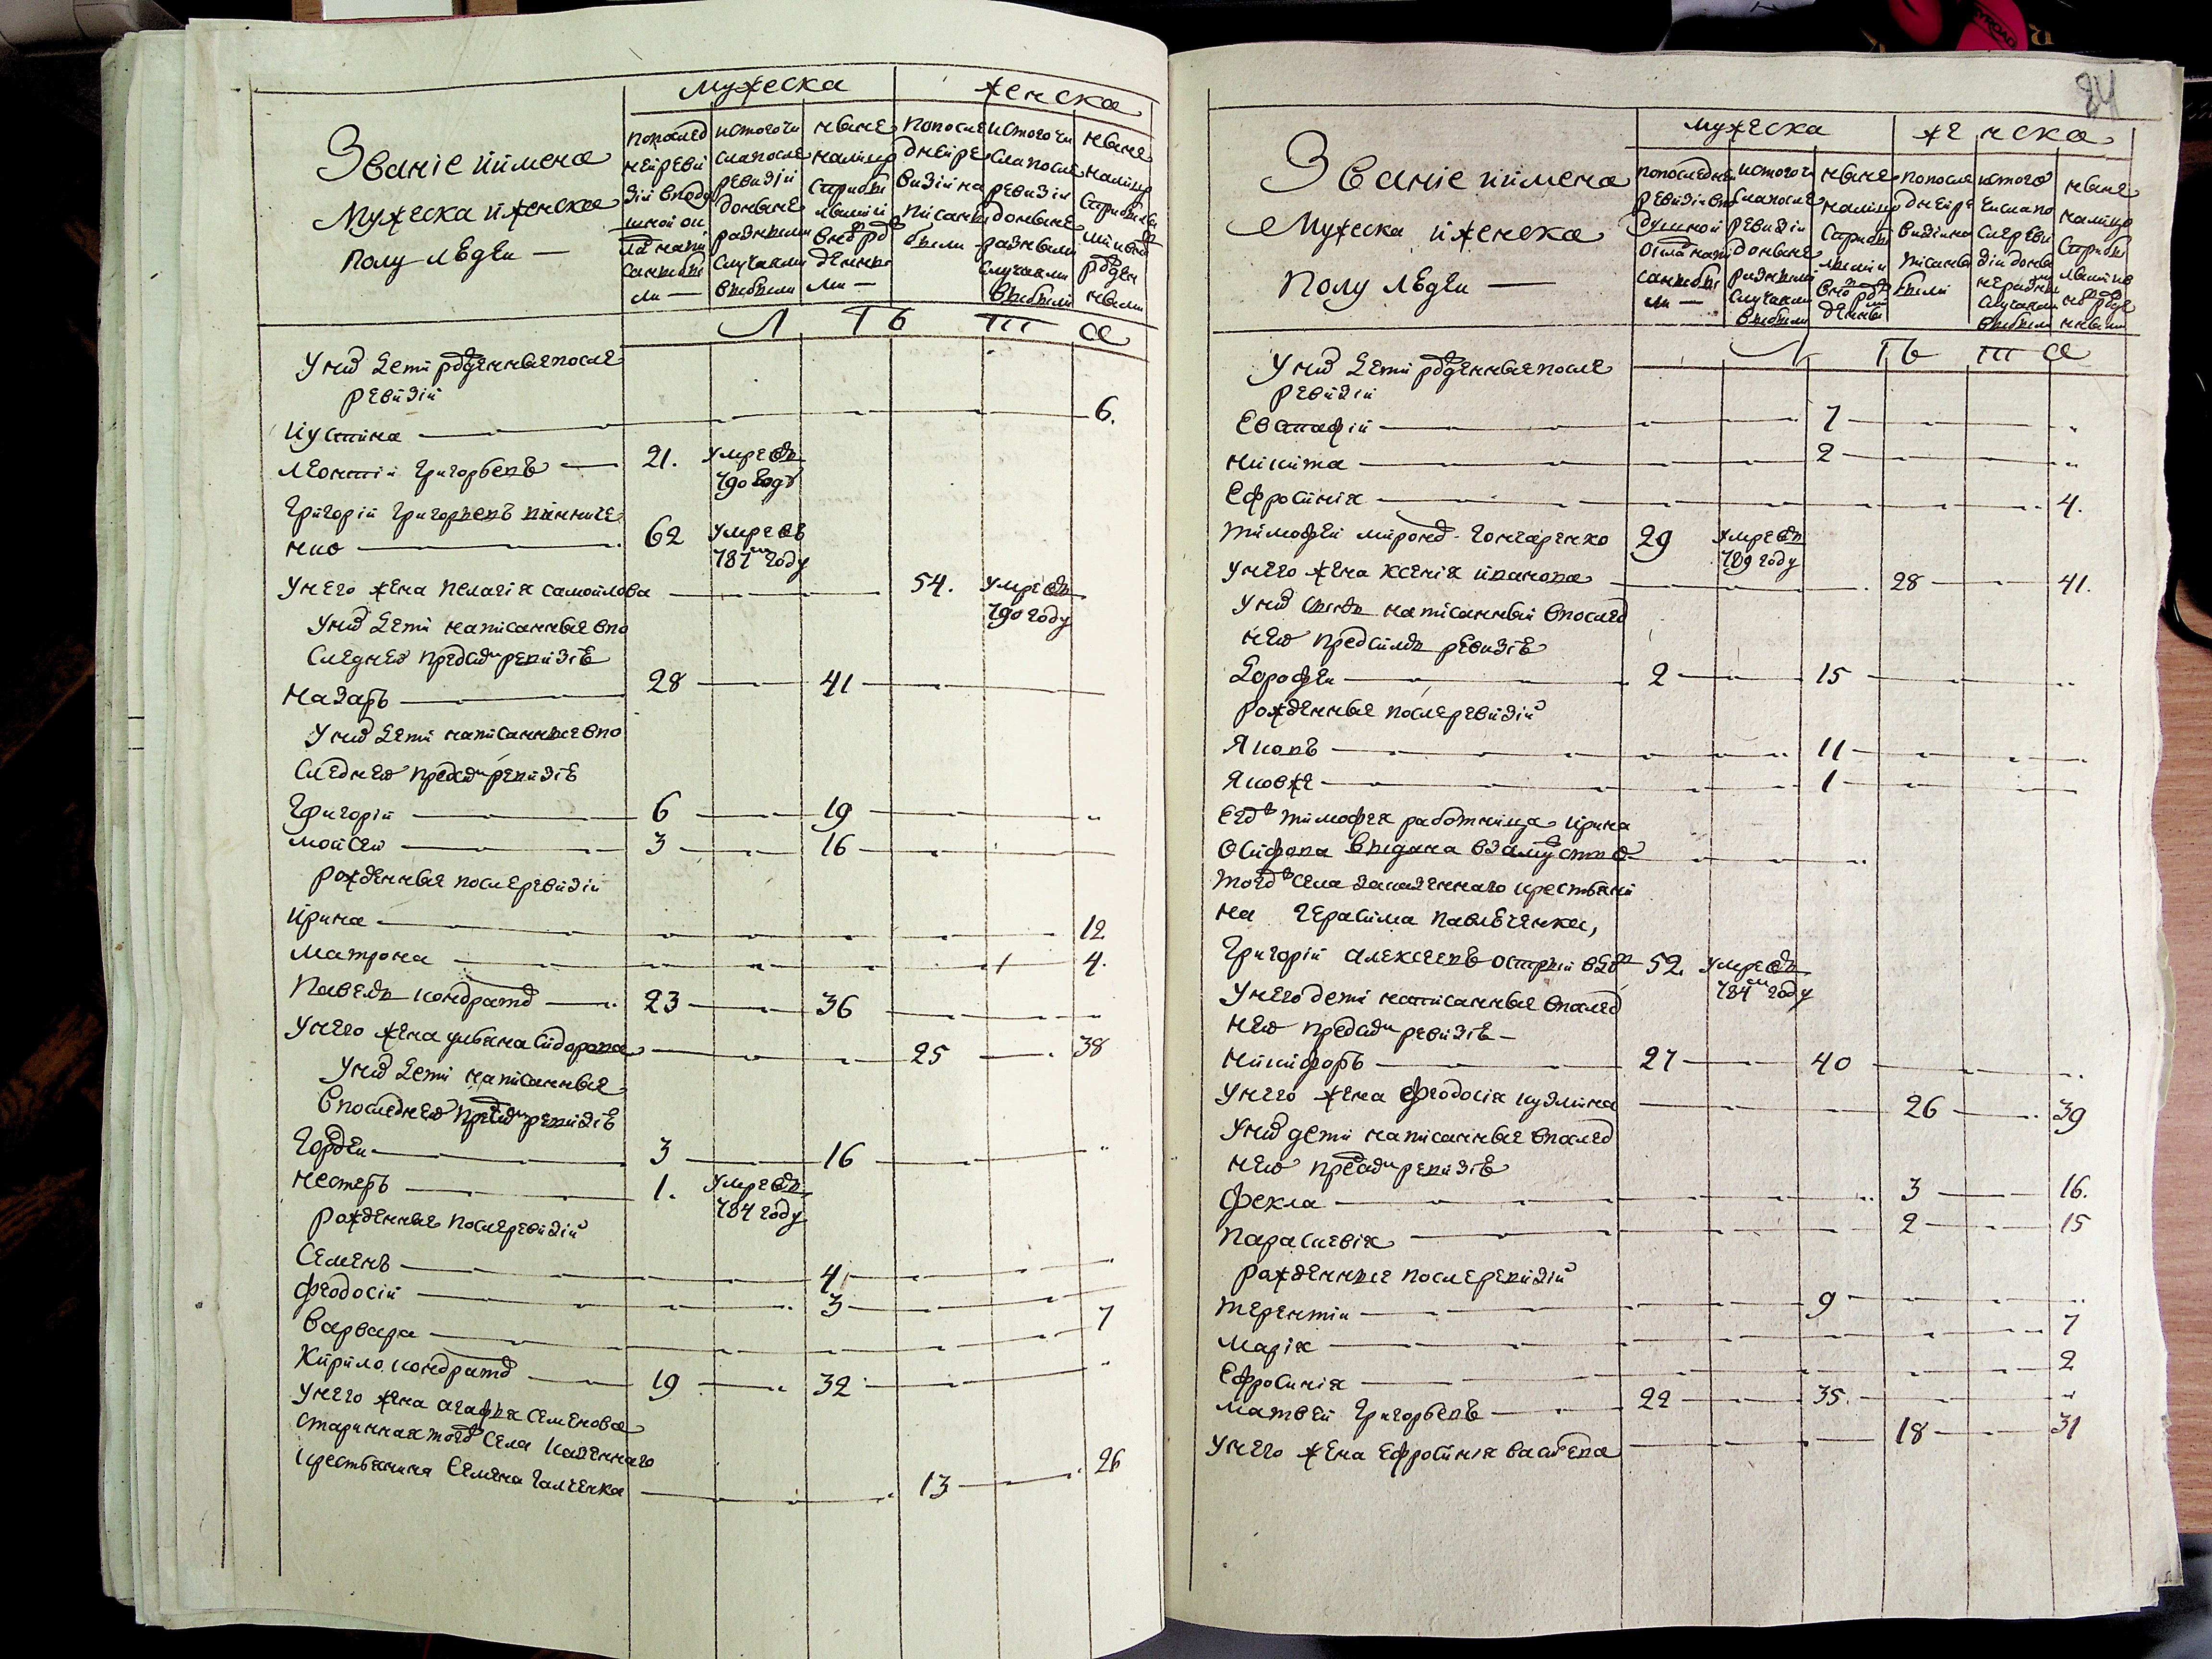 Званіе иимена
Мужеска иженска
полу лѣдеи —
мужеска
женска
попослед
нейреви
зіи вподу
шной ок
ладѣ напи
санныбы
ли —
истогочи
слапосле
ревизіи
доныне
разными
случаями
выбыли
ныне
налицо
сприбы
лыми и
вновьрож
денны
ми —
попосле
днейре
визіи на
писаны
были
истогочи
слапосле
ревизіи
доныне
разными
случаями
выбыли
ныне
налицо
сприбылы
ми ивновь
рожден
ными
Л ѣ т а
Униъ дети рожденныепосле
ревизіи
иустина 6.
леонтіи григорьевъ 21. умре въ
790 годѣ
григоріи григорьевъ винниче
нко 62 умре въ
787м году
унего жена пелагія самоилова 54. умре въ
790 году
униъ дети написанные впо
следнеи предъидъ ревизіѣ
назаръ 28 41
униъ дети написанные впо
следнеи предъидъ ревизіѣ
григоріи 6 19 „
моисеи 3 16
рожденные послеревизіи
ирина 12
матрона 4.
павелъ кондратовъ 23 36
унего жена ульяна сидорова 25 38
униъ дети написанные
впоследнеи предъидъ ревизіѣ
гордеи 3 16 „
нестеръ 1. умре въ
784 году
рожденные послеревизіи
семенъ 4
феодосіи 3
варвара 7
кирило кондратовъ 19 32 „
унего жена агафья семенова
стариннаятого села казеннаго
крестьянина семена галченка 13 26
84
Званіе иимена
Мужеска иженска
полу лѣдеи —
мужеска
женска
попоследнеи
ревизіи впо
душной
окладѣ напи
санныбы
ли —
истогочи
слапосле
ревизіи
доныне
разными
случаями
выбыли
ныне
налицо
сприбы
лыми и
вновьрож
денны
попосле
днеире
визіина
писаны
были
истого
числапо
слереви
зіи доны
неразны
случаями
выбыли
ныне
налицо
сприбы
лымиив
новьрожде
нными
Л ѣ т а
Униъ дети рожденныепосле
ревизіи
Евстафіи 7 „
никита 2 „
Ефросинія 4.
тимофеи мироновъ гончаренко 29 умре въ
789 году
унего жена ксенія иванова 28 41.
униъ сынъ написанныи впослед
неи предъидъ ревизіѣ
дорофеи 2 15 „
рожденные послеревизіи
Яковъ 11
Яковже 1
Его тимофея работница ирина
осифова выдана взамуство
тогожъ села казеннаго крестьяни
на герасима павлѣченка,
григоріи алексеевъ острыи вдовъ 52. умре въ
784м году
унего дети написанные впослед
неи предъидъ ревизіѣ —
никифоръ 27 40
унего жена феодосія кузмина 26 39
униъ дети написанные впослед
неи предъидъ ревизіѣ
фекла 3 16.
парасковія 2 15
рожденные послеревизіи
терентіи 9
марія 7
Ефросинія 2
матвеи григорьевъ 22 35. „
унего жена ефросинія васильева 18 31